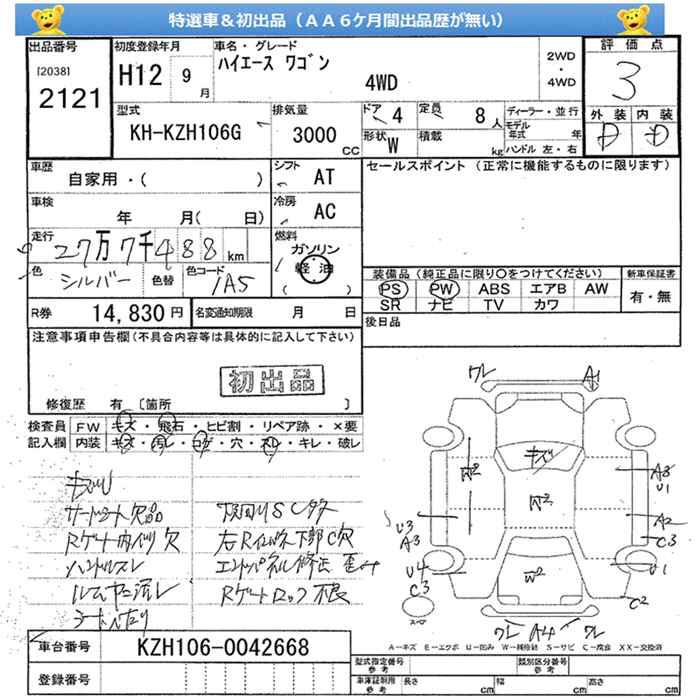 特選車＆初出品（ＡＡ６ケ月間出品歴が無い）
出品番号
[2038]
2121
初度登録年月
H12 9月
車名・グレード
ハイエース ワゴン
4WD
2WD
・
4WD
評価点
3
外装 内装
D D
型式
KH-KZH106G
排気量
3000 CC
ドア 4
定員 8人
形状 W
積載 kg
ディーラー・並行
モデル年式 年
ハンドル 左・右
車歴
自家用・( )
シフト AT
車検
年 月( 日)
冷房 AC
走行
27万7千488km
燃料
ガソリン
軽油
色 シルバー 色替 色コード 1A5
R券 14,830円 名変通知期限 月 日
セールスポイント（正常に機能するものに限ります）
装備品（純正品に限り○をつけてください） 新車保証書
PS PW ABS エアB AW 有・無
SR ナビ TV カワ
後日品
注意事項申告欄（不具合内容等は具体的に記入して下さい）
初出品
修復歴 有〔箇所 〕
検査員 FW キズ・飛石・ヒビ割・リペア跡・×要
記入欄 内装 キズ・汚レ・コゲ・穴・スレ・キレ・破レ
欠品
下回りSC
Rゲート内 欠
右R 下部C穴
ハンドルスレ
エンドパネル修正 歪み
ルーム 汚レ
Rゲートロック不良
シート
ワレ A1
キズ
W2 W2
A3
U1
U3
A3
A2
C3
U4
C3
W2
U1
C2
スペア
ワレ A4 ワレ
A－キズ E－エクボ U－凹み W－補修跡 S－サビ C－腐食 XX－交換済
車台番号 KZH106-0042668
登録番号
型式指定番号 参考
類別区分番号 参考
車庫証明用 参考 長さ cm 幅 cm 高さ cm